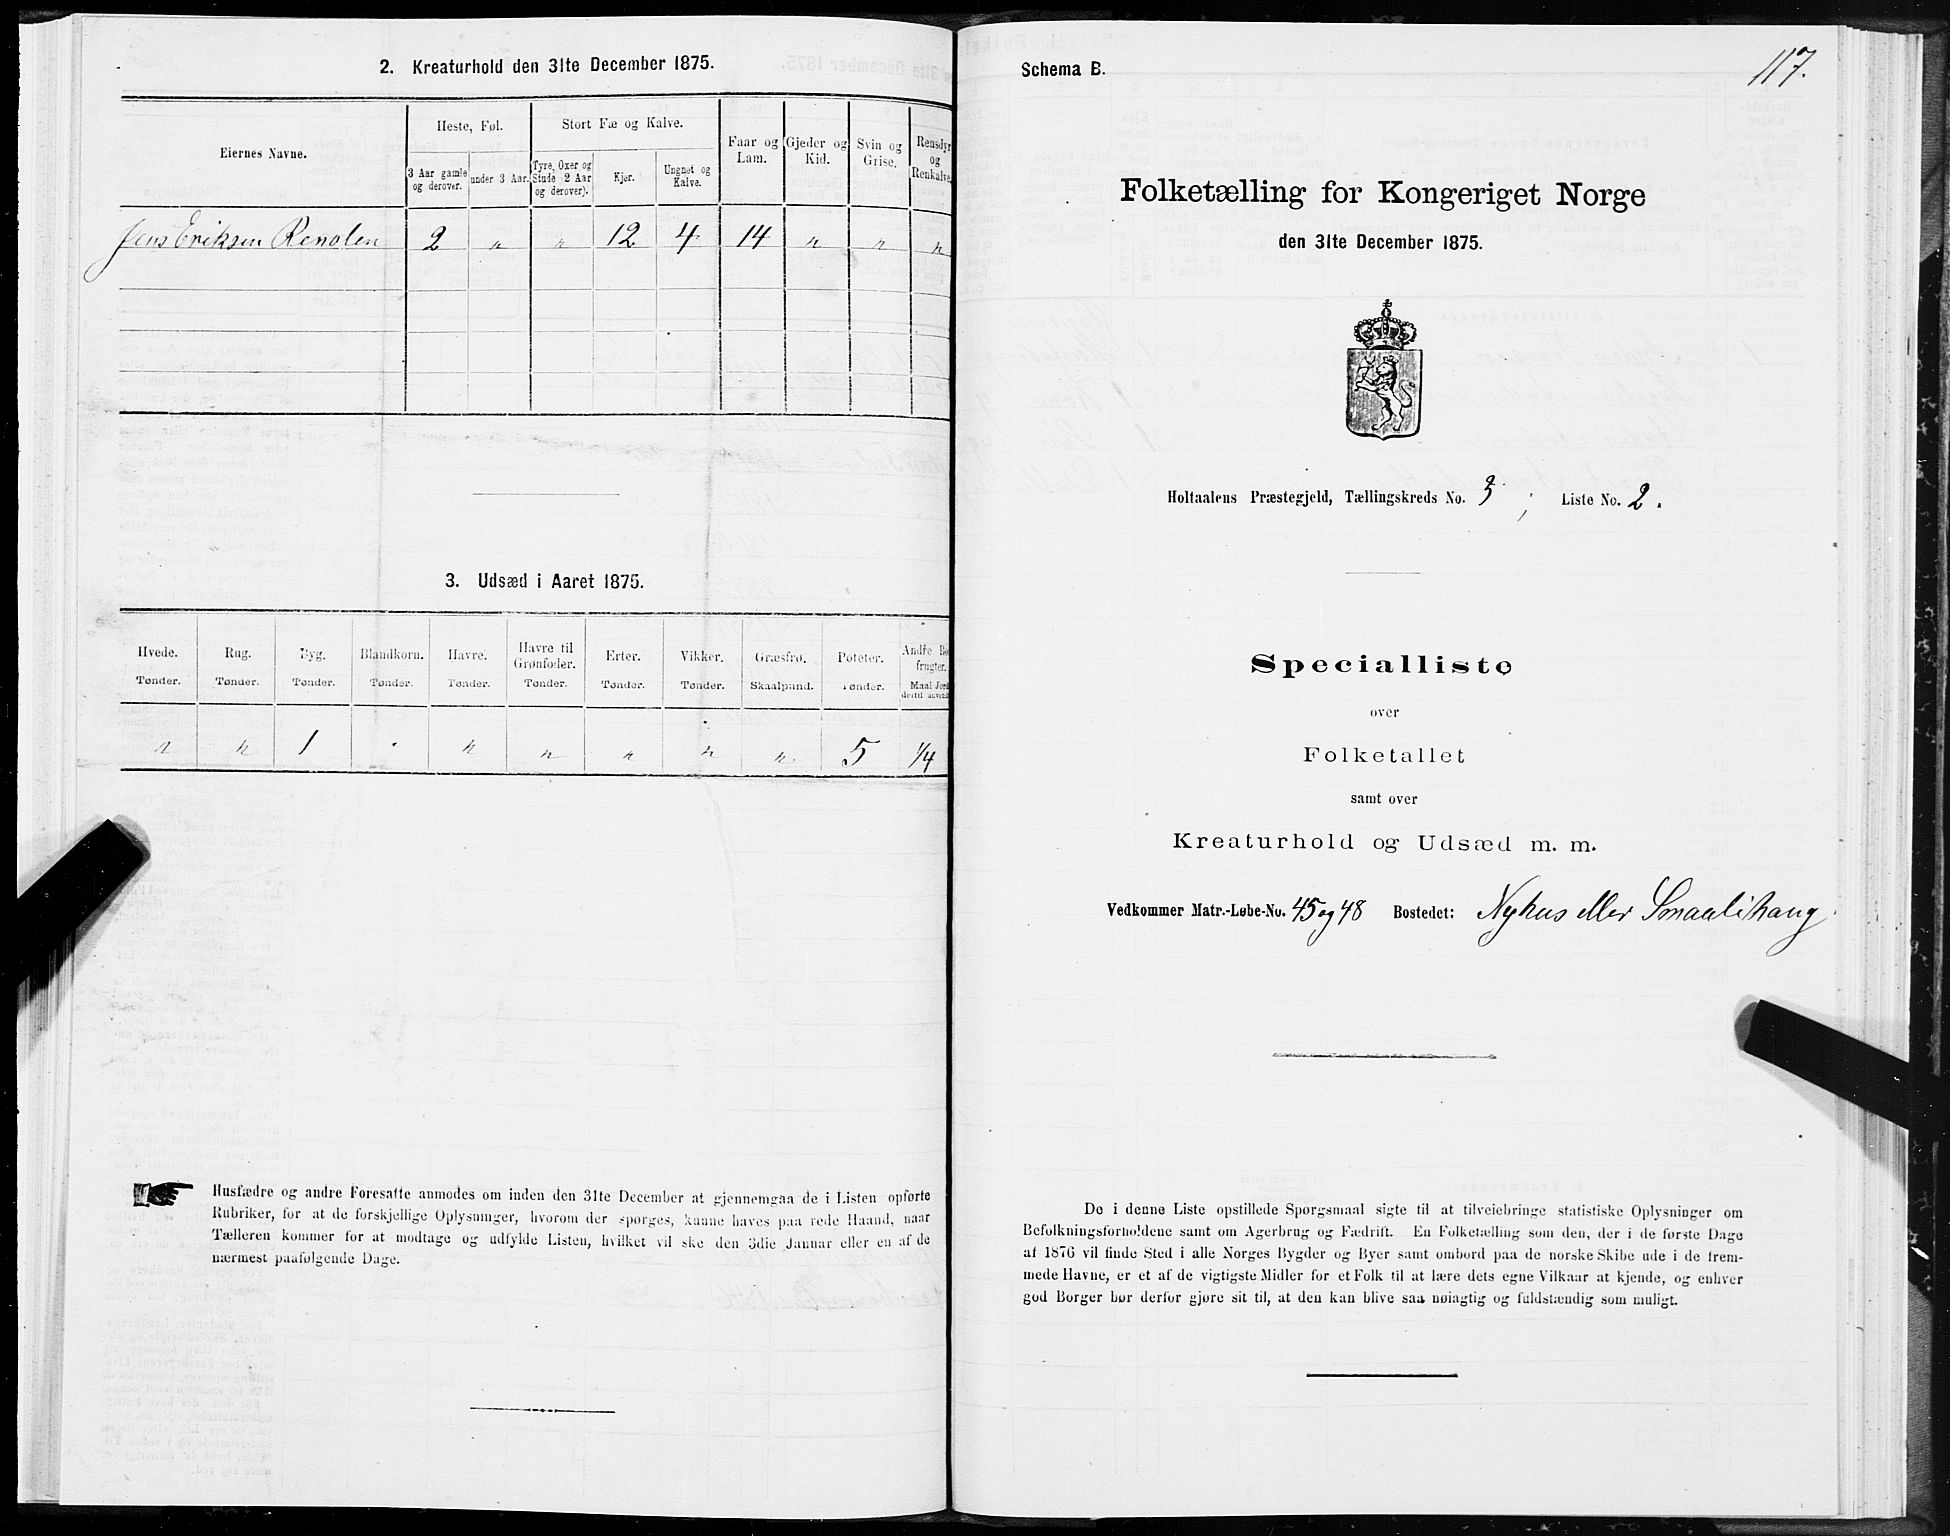 2. Kreaturhold den 31te December 1875.
Eiernes Navne.
Heste, Føl.
Stort Fæ og Kalve.
Faar og Lam.
Gjeder og Kid.
Svin og Grise.
Rensdyr og Renkalve.
3 Aar gamle og derover.
under 3 Aar.
Tyre, Oxer og Stude (2 Aar og derover).
Kjør.
Ungnøt og Kalve.
Jens Eriksen Renolen 2 „ „ 12 4 14 „ „ „
3. Udsæd i Aaret 1875.
Hvede. Rug. Byg. Blandkorn. Havre. Havre til Grønfoder. Erter. Vikker. Græsfrø. Poteter. Andre Ro frugter.
Tønder. Tønder. Tønder. Tønder. Tønder. Tønder. Tønder. Tønder. Skaalpund. Tønder. Maal Jord dertil anvendt
„ „ 1 . „ „ „ „ „ 5 1/4
Husfædre og andre Foresatte anmodes om inden den 31te December at gjennemgaa de i Listen opførte
Rubriker, for at de forskjellige Oplysninger, hvorom der spørges, kunne haves paa rede Haand, naar
Tælleren kommer for at modtage og udfylde Listen, hvilket vil ske den 3die Januar eller en af de
nærmest paafølgende Dage.
Schema B.
117.
Folketælling for Kongeriget Norge
den 31te December 1875.
Holtaalens Præstegjeld, Tællingskreds No. 3; Liste No. 2.
Specialliste
over
Folketallet
samt over
Kreaturhold og Udsæd m. m.
Vedkommer Matr.-Løbe-No. 45 og 48 Bostedet: Nyhus eller Smaalihaug
De i denne Liste opstillede Spørgsmaal sigte til at tilveiebringe statistiske Oplysninger om
Befolkningsforholdene samt om Agerbrug og Fædrift. En Folketælling som den, der i de første Dage
af 1876 vil finde Sted i alle Norges Bygder og Byer samt ombord paa de norske Skibe ude i de frem-
mede Havne, er et af de vigtigste Midler for et Folk til at lære dets egne Vilkaar at kjende, og enhver
god Borger bør derfor gjøre sit til, at den kan blive saa nøiagtig og fuldstændig som muligt.